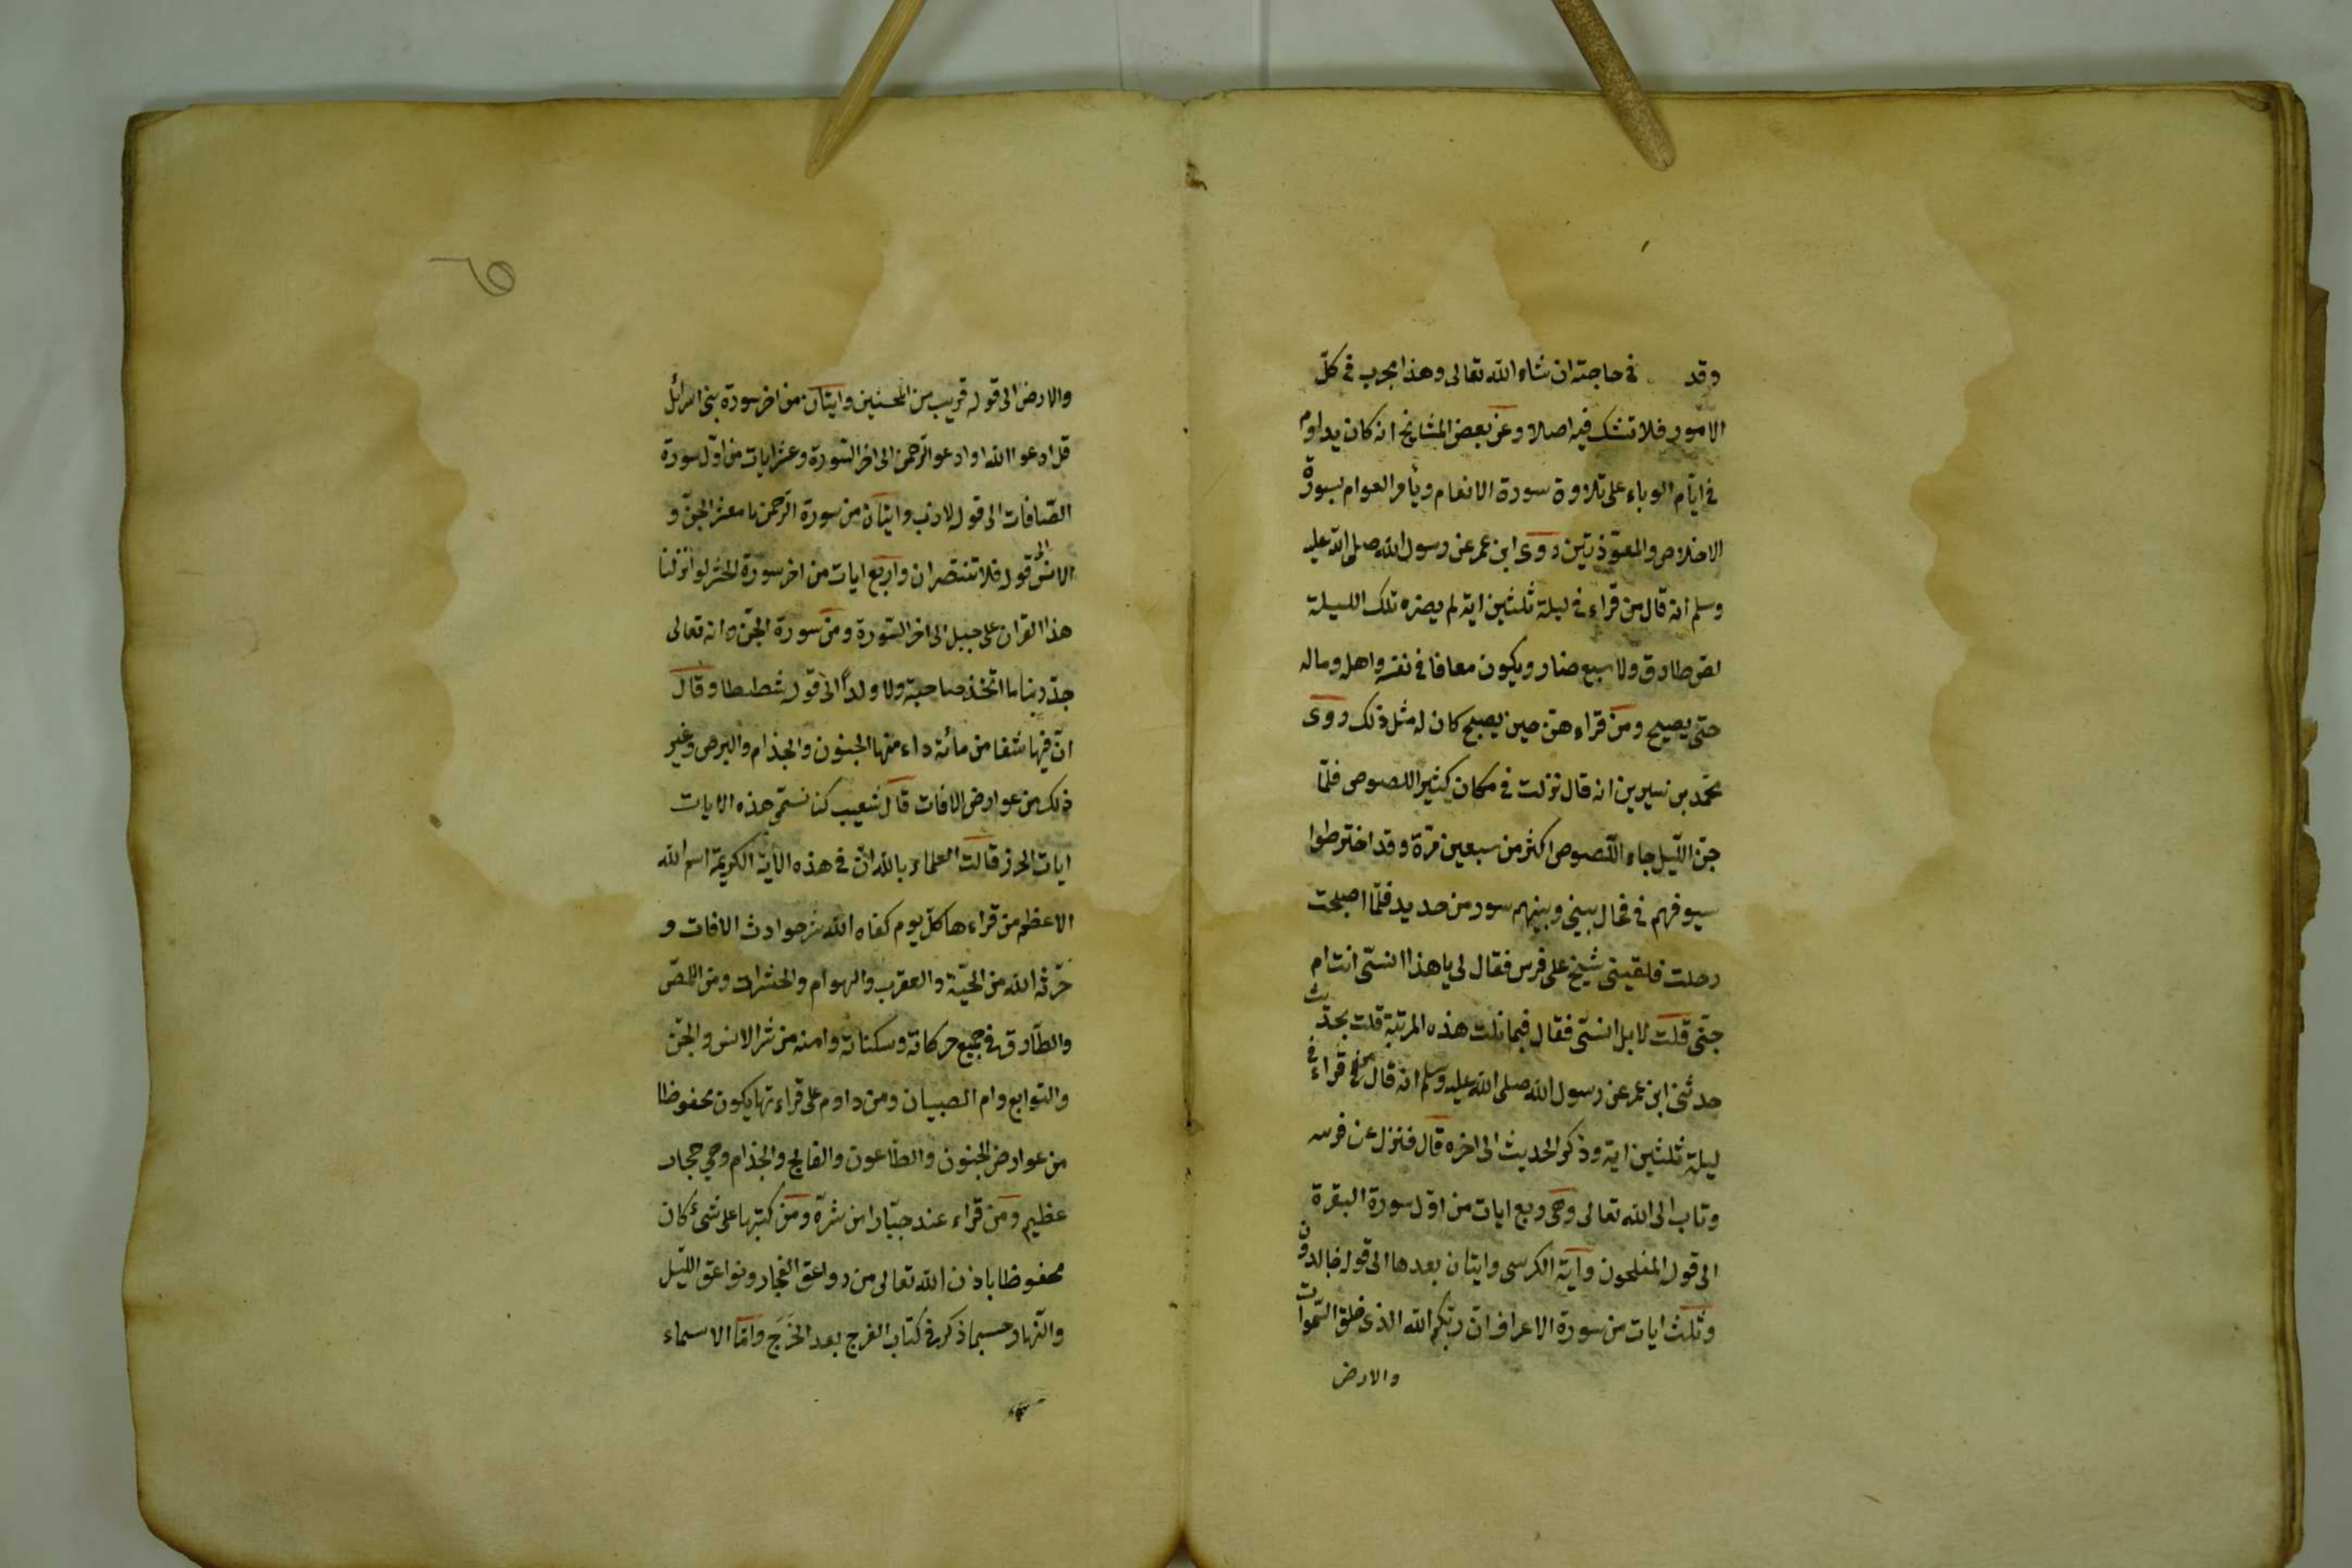 وقد في حاجته ان شاء الله تعالى وهذا مجرب في كلّ
الامور فلا تشك فيه اصلا وعن بعض المشايخ انه كان يداوم
في ايّام الوباء على تلاوة سورة الانعام ويأمر العوام بسورة
الاخلاص والمعوّذتين روى ابن عمر عن رسول الله صلى الله عليه
وسلم انه قال من قراء في ليلة ثلثين اية لم يضره تلك الليلة
لص طارق ولا سبع ضار ويكون معافا في نفسه واهله وماله
حتّى يصبح ومن قراء هنّ حين يصبح كان له مثل ذلك روى
محمّد بن سيرين انه قال نزلت في مكان كثير اللصوص فلمّا
جنّ اللّيل جاء اللّصوص اكثر من سبعين مرّة وقد اخترطوا
سيوفهم في فحال بيني وبينهم سور من حديد فلمّا اصبحت
رحلت فلقيني شيخ على فرس فقال لي يا هذا انسّي انت ام
جنّي قلت لا بل انسّي فقال فبما نلت هذه المرتبة قلت بحديث
حدثني ابن عمر عن رسول الله صلى الله عليه وسلم انه قال من قراء في
ليلة ثلثين اية وذكر الحديث الى اخره قال فنزل عن فرسه
وتاب الى الله تعالى وهي اربع ايات من اوّل سورة البقرة
الى قوله المفلحون وآية الكرسي وايتان بعدها الى قوله خالدون
وثلث ايات من سورة الاعراف انّ ربّكم الله الذي خلق السّموات
والارض
والارض الى قوله قريب من المحسنين وايتان من اخر سورة بني اسرائل
قل ادعوا الله او ادعو الرّحمن الى اخر السّورة وعشر ايات من اوّل سورة
الصّافات الى قوله لازب وايتان من سورة الرّحمن يا معشر الجنّ و
الانس الى قوله فلا تنتصران واربع ايات من اخر سورة الحشر لو انزلنا
هذا القران على جبل الى اخر السّورة ومن سورة الجنّ وانه تعالى
جدّ ربنا ما اتّخذ صاحبة ولا ولداً الى قوله شططا وقال
انّ فيها شفا من مائة داء منها الجنون والجذام والبرص وغير
ذلك من عوارض الافات قال شعيب كنا نسمّي هذه الايات
ايات الحرز قالت العلماء بالله انّ في هذه الأية الكريمة اسم الله
الاعظم من قراءها كلّ يوم كفاه الله شر حوادث الافات و
حرّثه الله من الحيّة والعقرب والهوام والحشرات ومن اللصّ
والطّارق في جميع حركاته وسكناته وامنه من شر الانس والجنّ
والتوابع وام الصبيان ومن داوم على قراءتها يكون محفوظا
من عوارض الجنون والطّاعون والفالج والجذام وهي حجاب
عظيم ومن قراء عند جبّار امن شرّه ومن كتبها على شيء كان
محفوظا باذن الله تعالى من الفجار اللّيل
والنّهار حسبما ذكر في كتاب الفرج بعد الحَرَج وامّا الاسماء